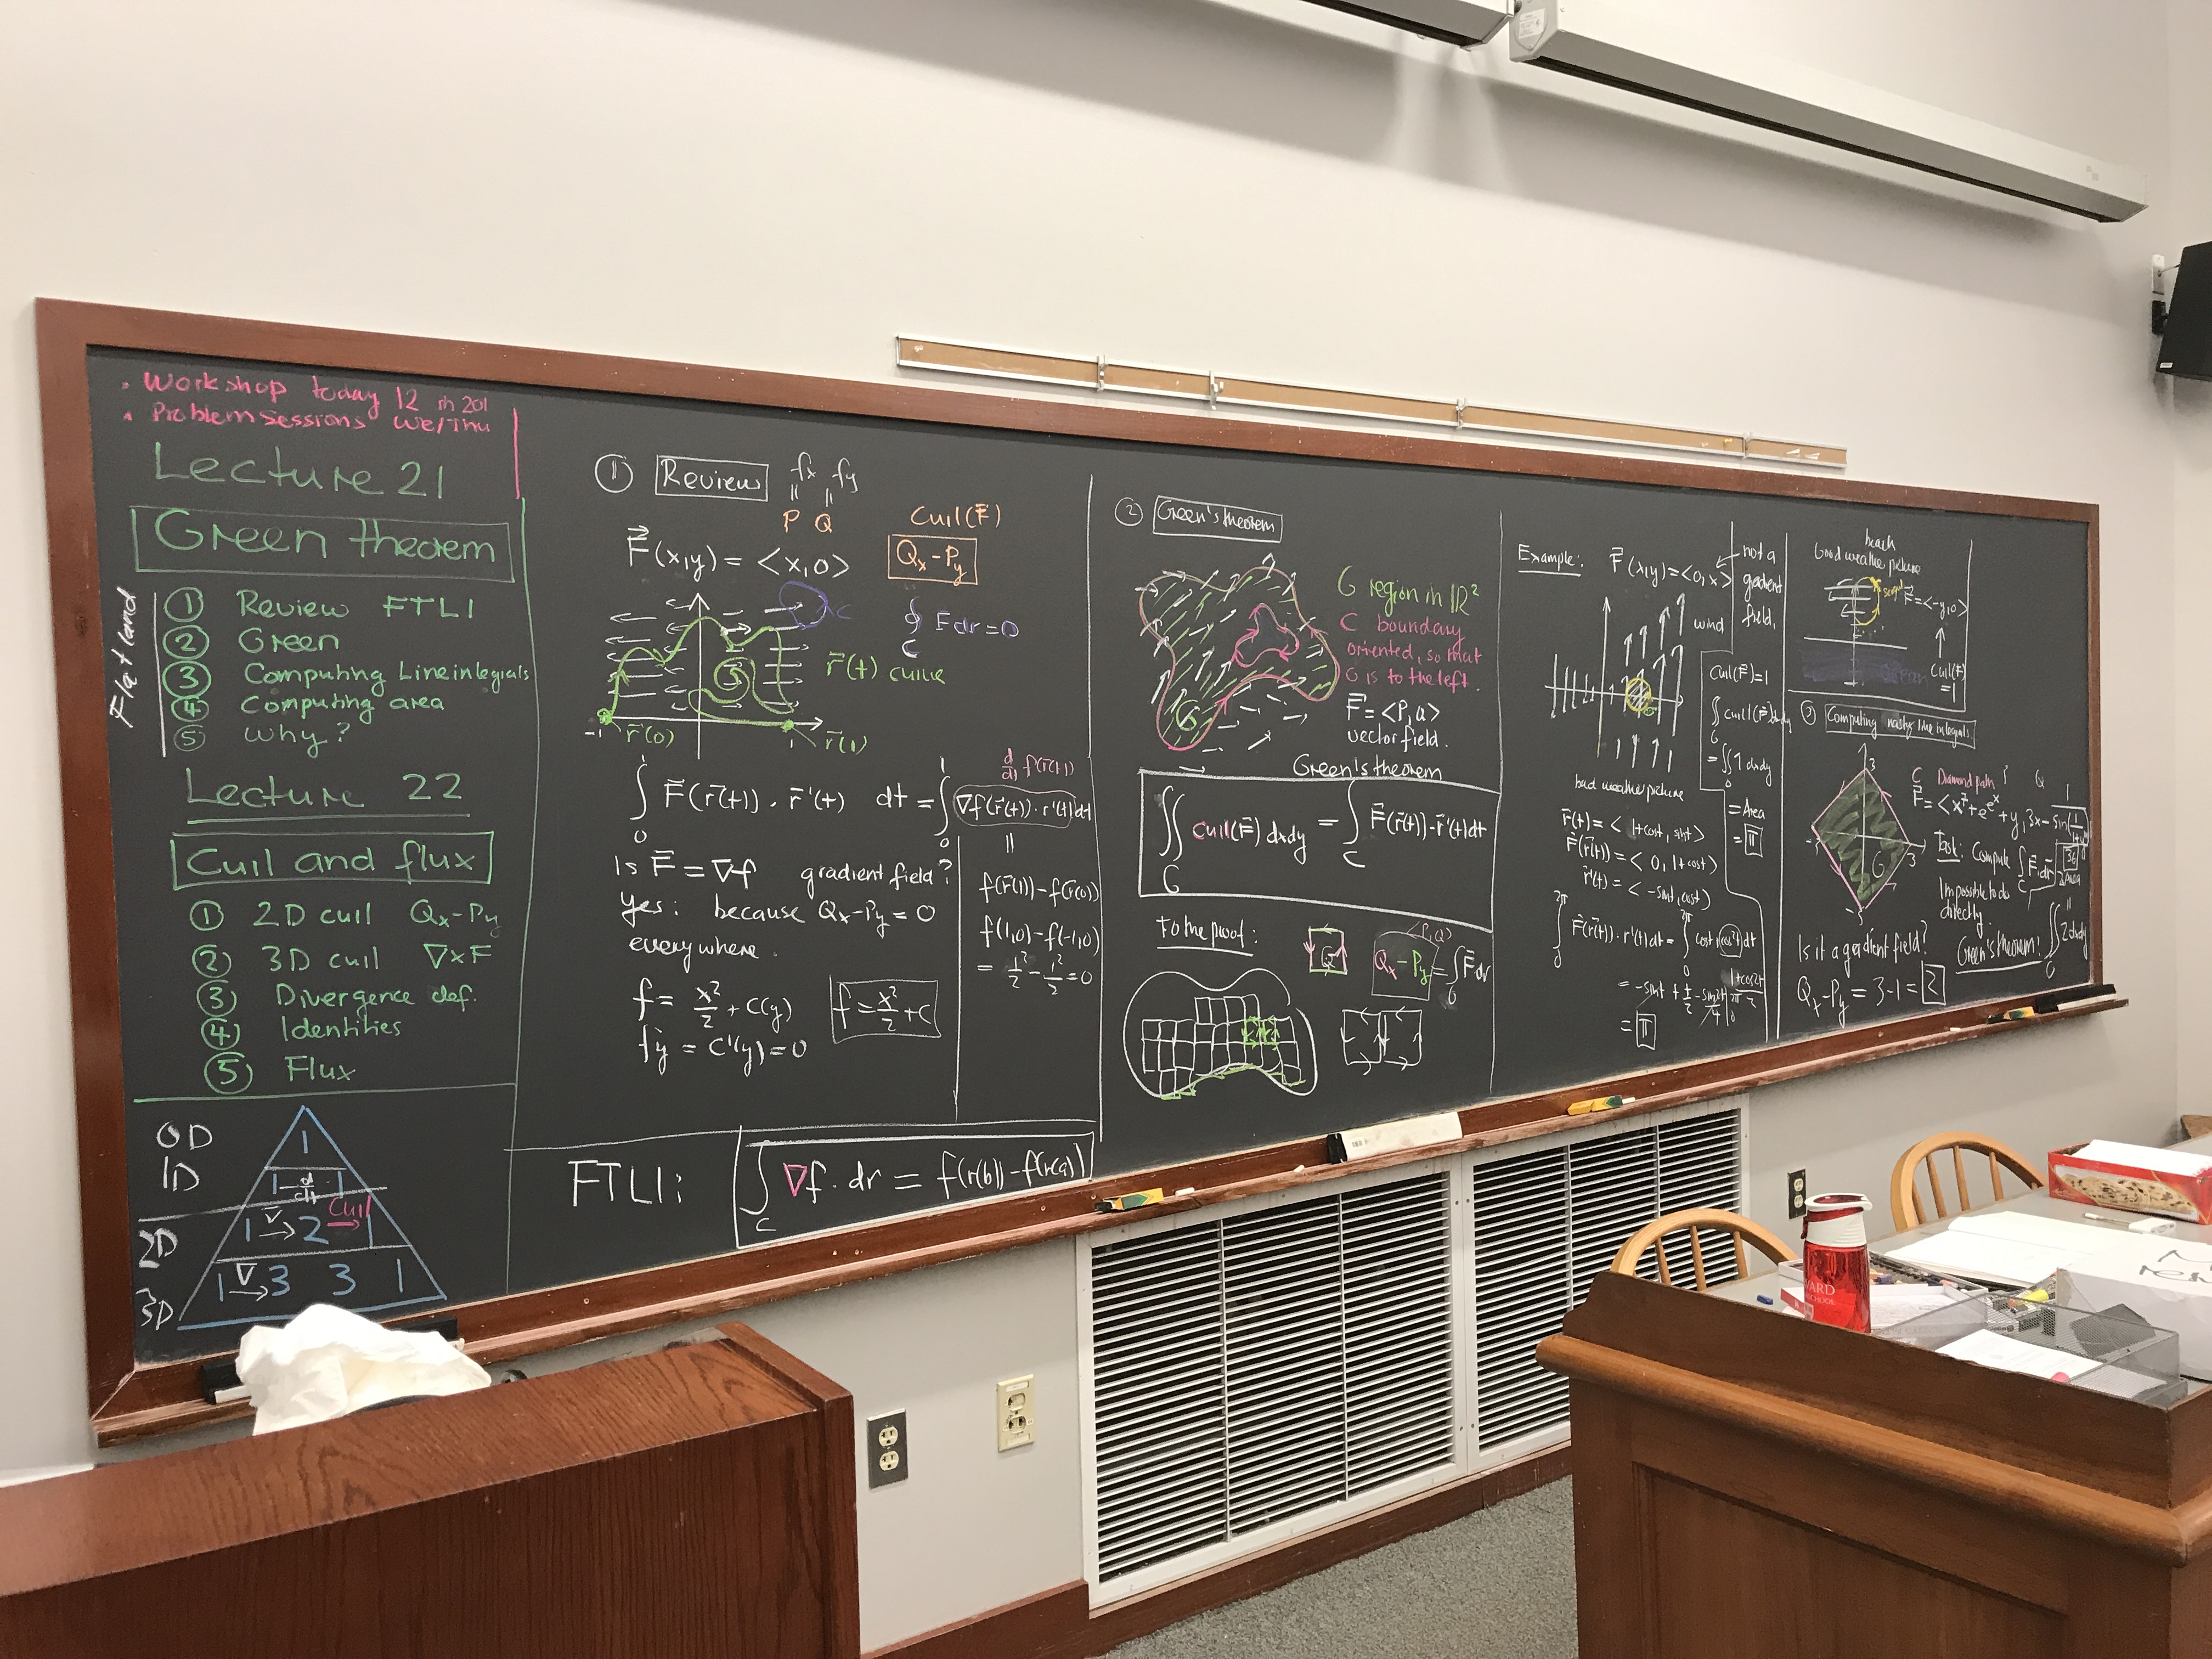 • Workshop today 12 rh 201
• Problem sessions We/Thu
Lecture 21
Green theorem
Flatland
① Review FTLI
② Green
③ Computing Line integrals
④ Computing area
⑤ Why?
Lecture 22
Curl and flux
① 2D curl Qx-Py
② 3D curl ∇×F
③ Divergence def.
④ Identities
⑤ Flux
0D 1
1D 1 d/dt 1
2D 1 ∇→ 2 Curl→ 1
3D 1 ∇→ 3 3 1
① Review
fx fy
|| ||
P , Q
F⃗(x,y) = <x,0>
Curl(F⃗)
Qx-Py
C
∮_C F dr = 0
r⃗(t) curve
-1 r⃗(0) 1 r⃗(1)
∫_0^1 F⃗(r⃗(t)) · r⃗'(t) dt = ∫_0^1 ∇f(r⃗(t)) · r'(t) dt
d/dt f(r⃗(t))
||
f(r⃗(1)) - f(r⃗(0))
f(1,0) - f(-1,0)
= 1²/2 - 1²/2 = 0
Is F⃗ = ∇f gradient field?
yes: because Qx-Py = 0
everywhere.
f = x²/2 + C(y)
fy = C'(y) = 0
f = x²/2 + C
FTLI: ∫_C ∇f · dr = f(r(b)) - f(r(a))
② Green's theorem
G
G region in ℝ²
C boundary
oriented, so that
G is to the left.
F⃗ = <P,Q>
vector field.
Green's theorem
∬_G curl(F⃗) dxdy = ∫_C F⃗(r⃗(t)) · r⃗'(t) dt
To the proof:
<P,Q>
Qx-Py = ∫ F⃗ dr
Example: F⃗(x,y) = <0,x>
not a
gradient
field.
wind
bad weather picture
r⃗(t) = < 1+cost, sint >
F⃗(r⃗(t)) = < 0, 1+cost >
r⃗'(t) = < -sint, cost >
∫_0^2π F⃗(r⃗(t)) · r'(t) dt = ∫_0^2π cost + cos²t dt
1+cos2t / 2
= π
Curl(F⃗) = 1
∬_G curl(F⃗) dxdy
= ∬_G 1 dxdy
= Area
= π
beach
Good weather picture
F⃗ = <-y,0>
Curl(F⃗)
= 1
ocean
③ Computing nasty line integrals
3
3
-3
G
C Diamond path P Q
Task: Compute ∫_C F⃗ dr
36
Impossible to do
directly.
Is it a gradient field?
Green's theorem! ∬_G 2 dxdy
Qx-Py = 3-1 = 2